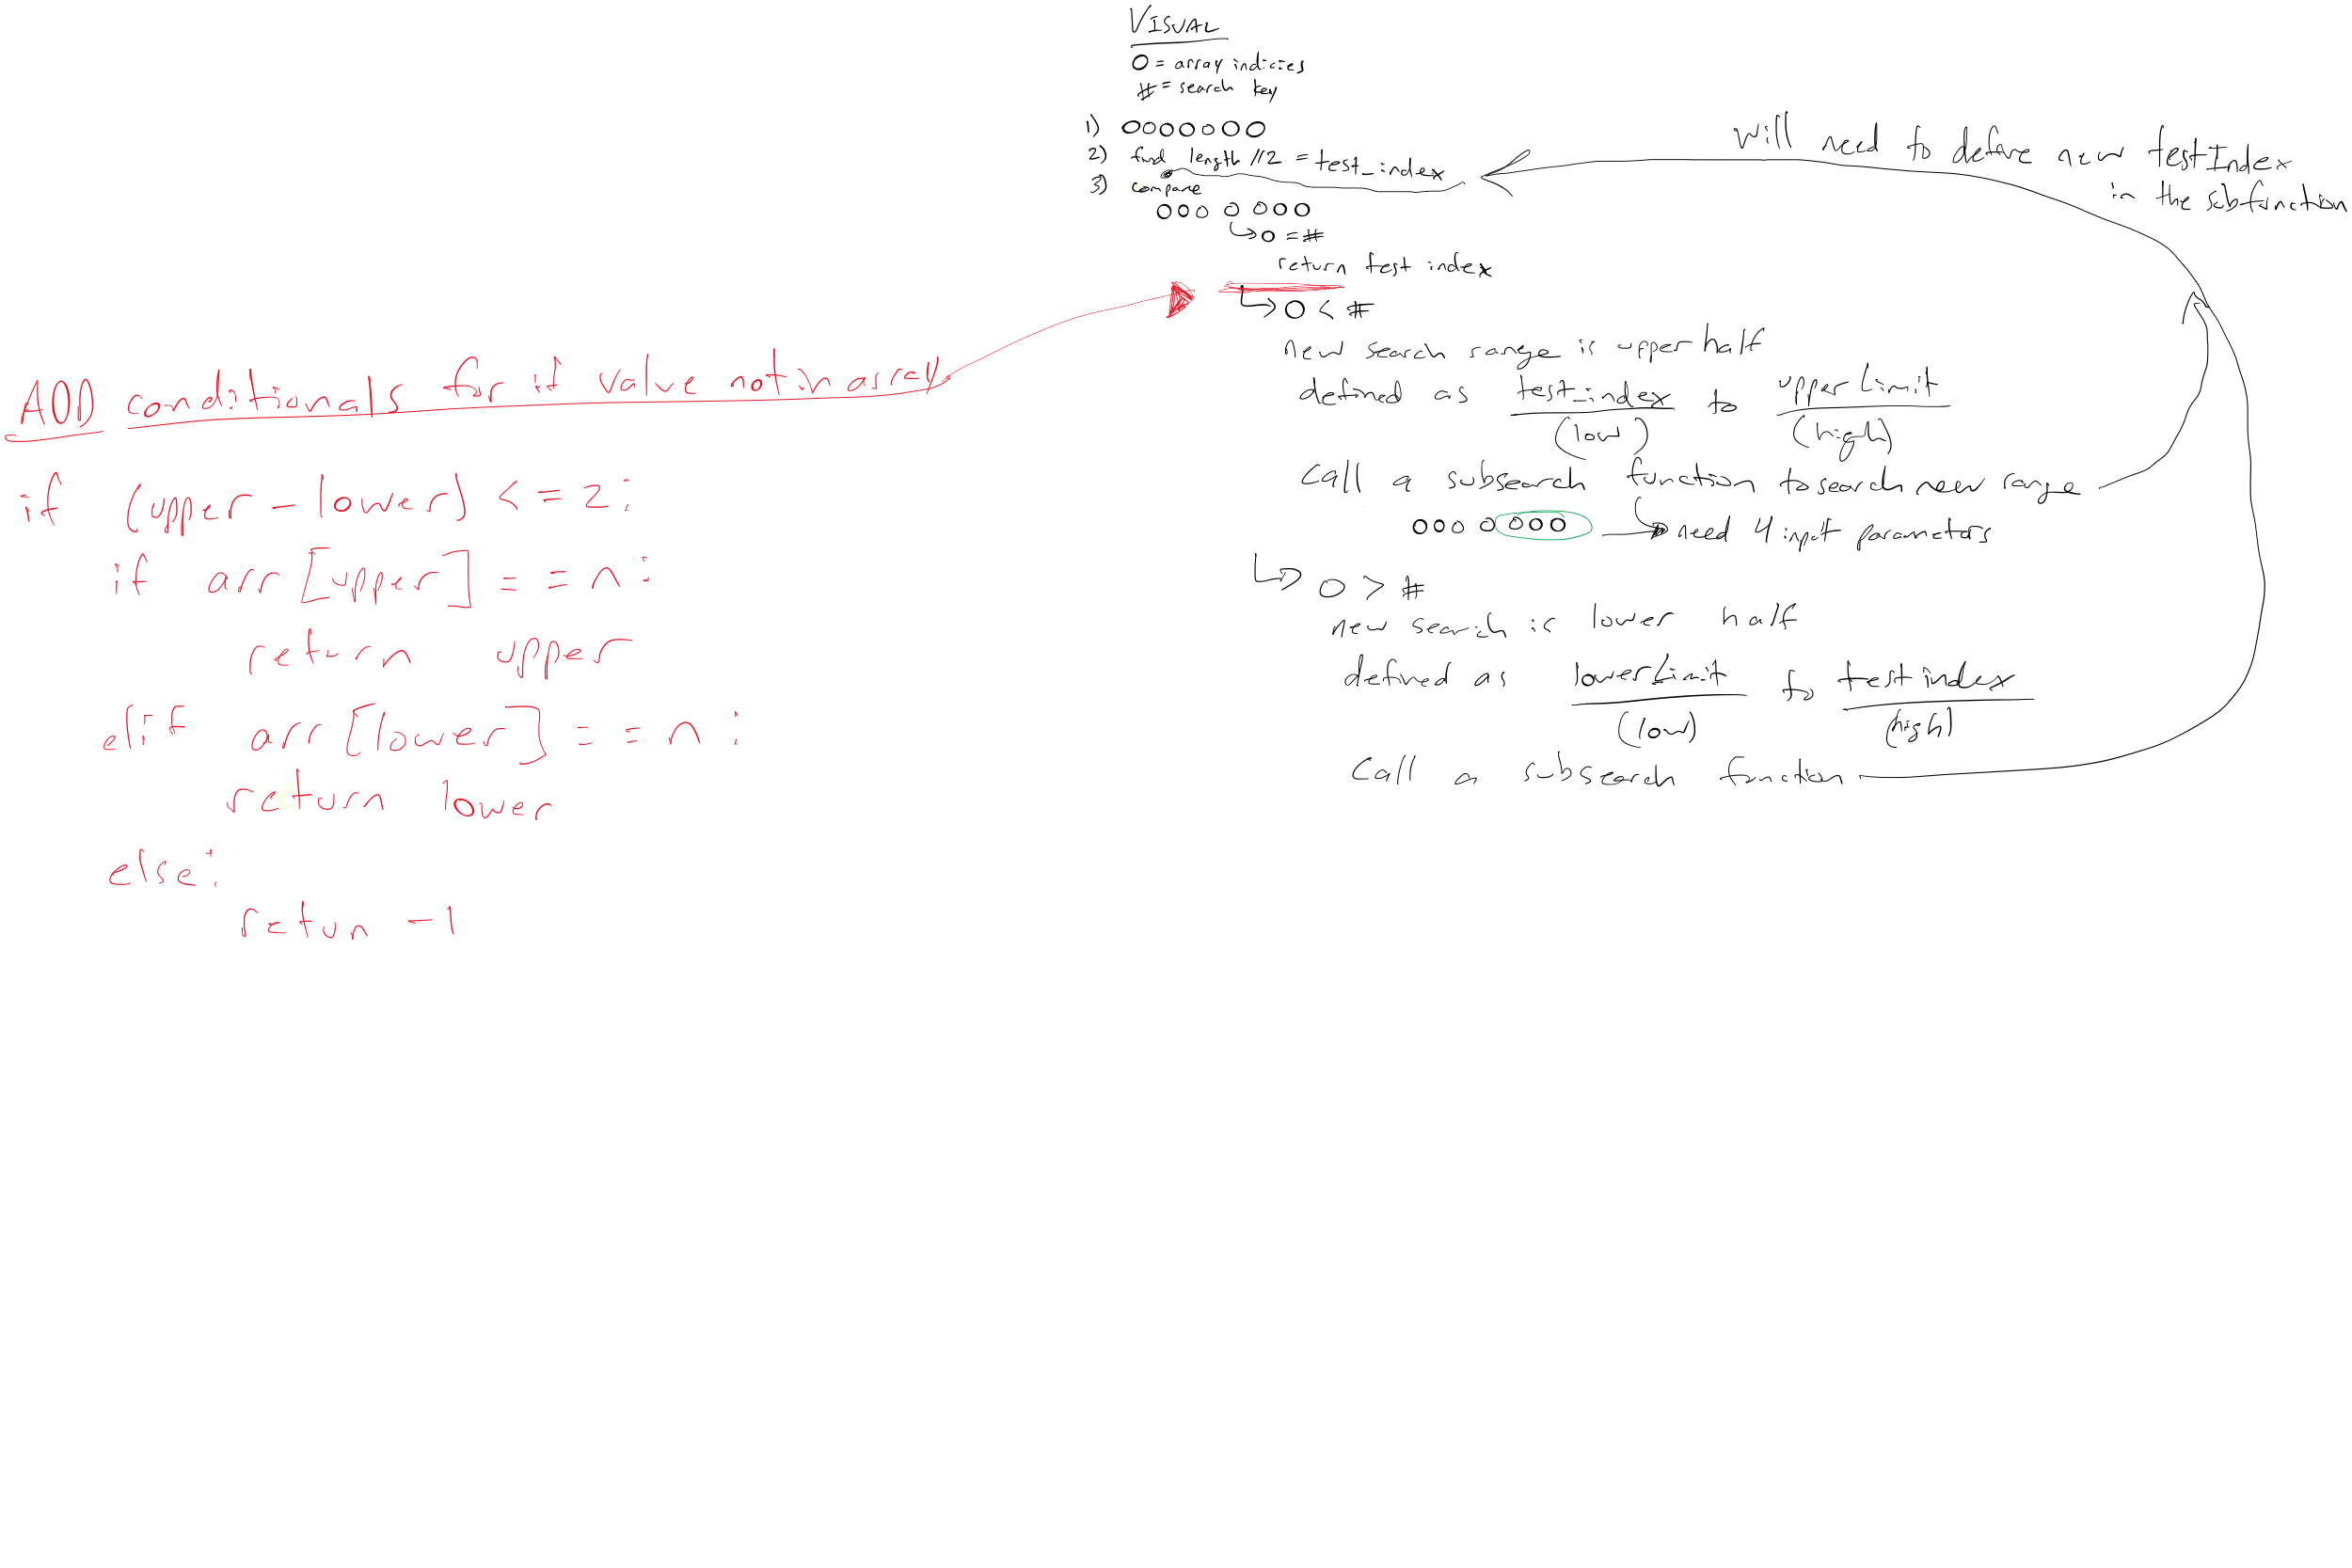 VISUAL
O = array indicies
# = search key
1) OOOOOOO
2) find length //2 = test_index
3) compare
OOO O OOO
O = #
return test index
O < #
new search range is upper half
defined as test_index to upper Limit
(low) (high)
Call a subsearch function to search new range
OOO O OOO need 4 input parameters
O > #
new search is lower half
defined as lower Limit to test index
(low) (high)
Call a subsearch function
Will need to define new testIndex
in the subfunction
ADD conditionals for if value not in array
if (upper - lower) <= 2:
if arr[upper] == n:
return upper
elif arr[lower] == n:
return lower
else:
retun -1